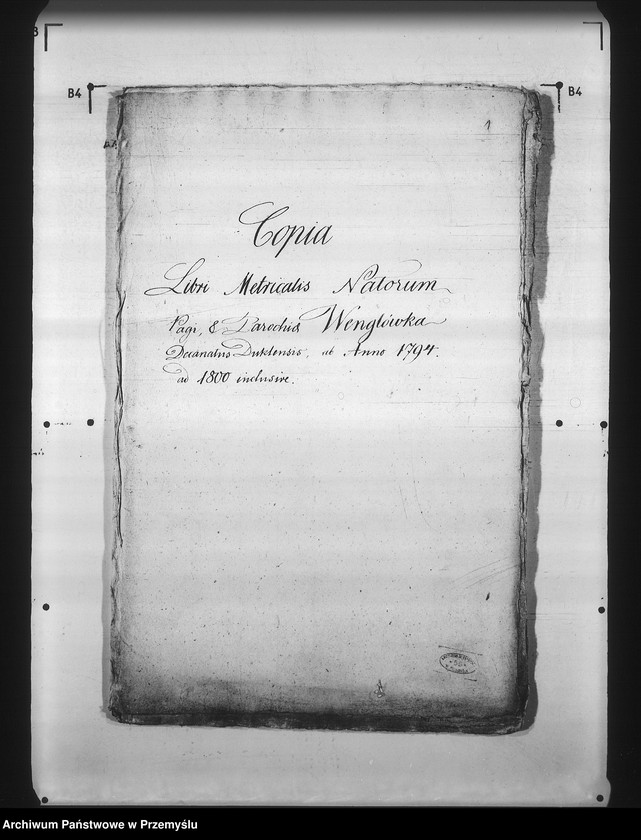 B4
B4
1
Copia
Libri Metricalis Natorum
Pagi, & Parochia Wenglówka
Decanatus Duklensis, ab Anno 1794.
ad 1800 inclusive.
Archiwum Państwowe w Przemyślu